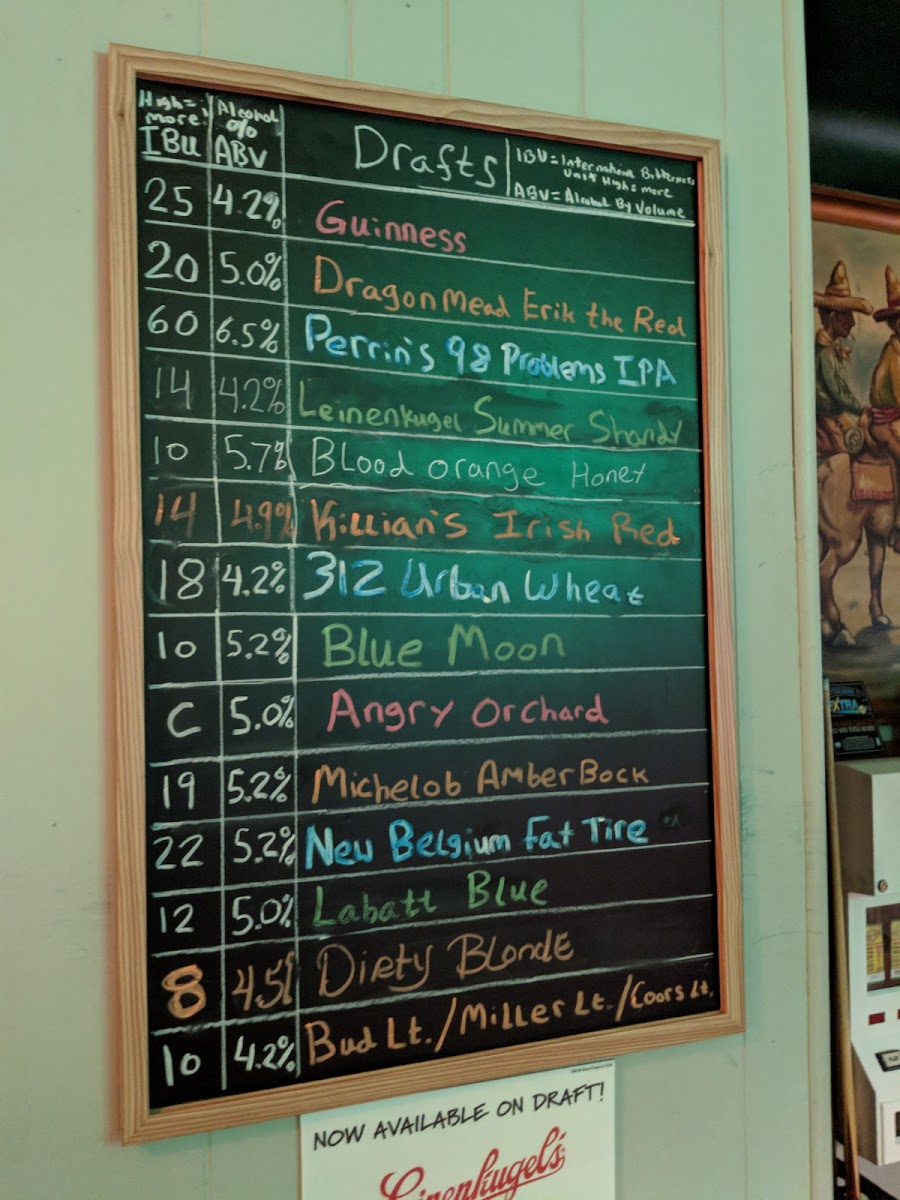 High = more IBU
Alcohol % ABV
Drafts
IBU = International Bitterness
Unit High = more
ABV = Alcohol By Volume
25 4.2% Guinness
20 5.0% Dragonmead Erik the Red
60 6.5% Perrin's 98 Problems IPA
14 4.2% Leinenkugel Summer Shandy
10 5.7% Blood orange Honey
14 4.9% Killian's Irish Red
18 4.2% 312 Urban Wheat
10 5.2% Blue Moon
C 5.0% Angry Orchard
19 5.2% Michelob Amber Bock
22 5.2% New Belgium Fat Tire
12 5.0% Labatt Blue
8 4.5% Dirty Blonde
10 4.2% Bud Lt./Miller Lt./Coors Lt.
NOW AVAILABLE ON DRAFT!
Leinenkugel's
EXTRA